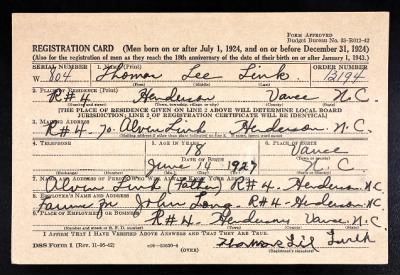 FORM APPROVED
Budget Bureau No. 33-R012-42
REGISTRATION CARD (Men born on or after July 1, 1924, and on or before December 31, 1924)
(Also for the registration of men as they reach the 18th anniversary of the date of their birth on or after January 1, 1943.)
SERIAL NUMBER 1. NAME (Print) ORDER NUMBER
W 804 Thomas Lee Link
(First) (Middle) (Last)
2. PLACE OF RESIDENCE (Print)
R#4 Henderson Vance N.C.
[THE PLACE OF RESIDENCE GIVEN ON LINE 2 ABOVE WILL DETERMINE LOCAL BOARD
JURISDICTION; LINE 2 OF REGISTRATION CERTIFICATE WILL BE IDENTICAL]
3. MAILING ADDRESS
R#4 - Alvin Link Henderson N.C.
4. TELEPHONE 5. AGE IN YEARS 6. PLACE OF BIRTH
18 Vance
DATE OF BIRTH
June 14 N.C.
7. NAME AND ADDRESS OF PERSON WHO WILL ALWAYS KNOW YOUR ADDRESS
Alvin Link (Father) R#4 - Henderson N.C.
8. EMPLOYER'S NAME AND ADDRESS
John Long R#4 - Henderson N.C.
9. PLACE OF EMPLOYMENT OR BUSINESS
R#4 - Henderson Vance N.C.
I AFFIRM THAT I HAVE VERIFIED ABOVE ANSWERS AND THAT THEY ARE TRUE.
DSS Form 1 (Rev. 11-16-42) (OVER)
(Registrant's signature)